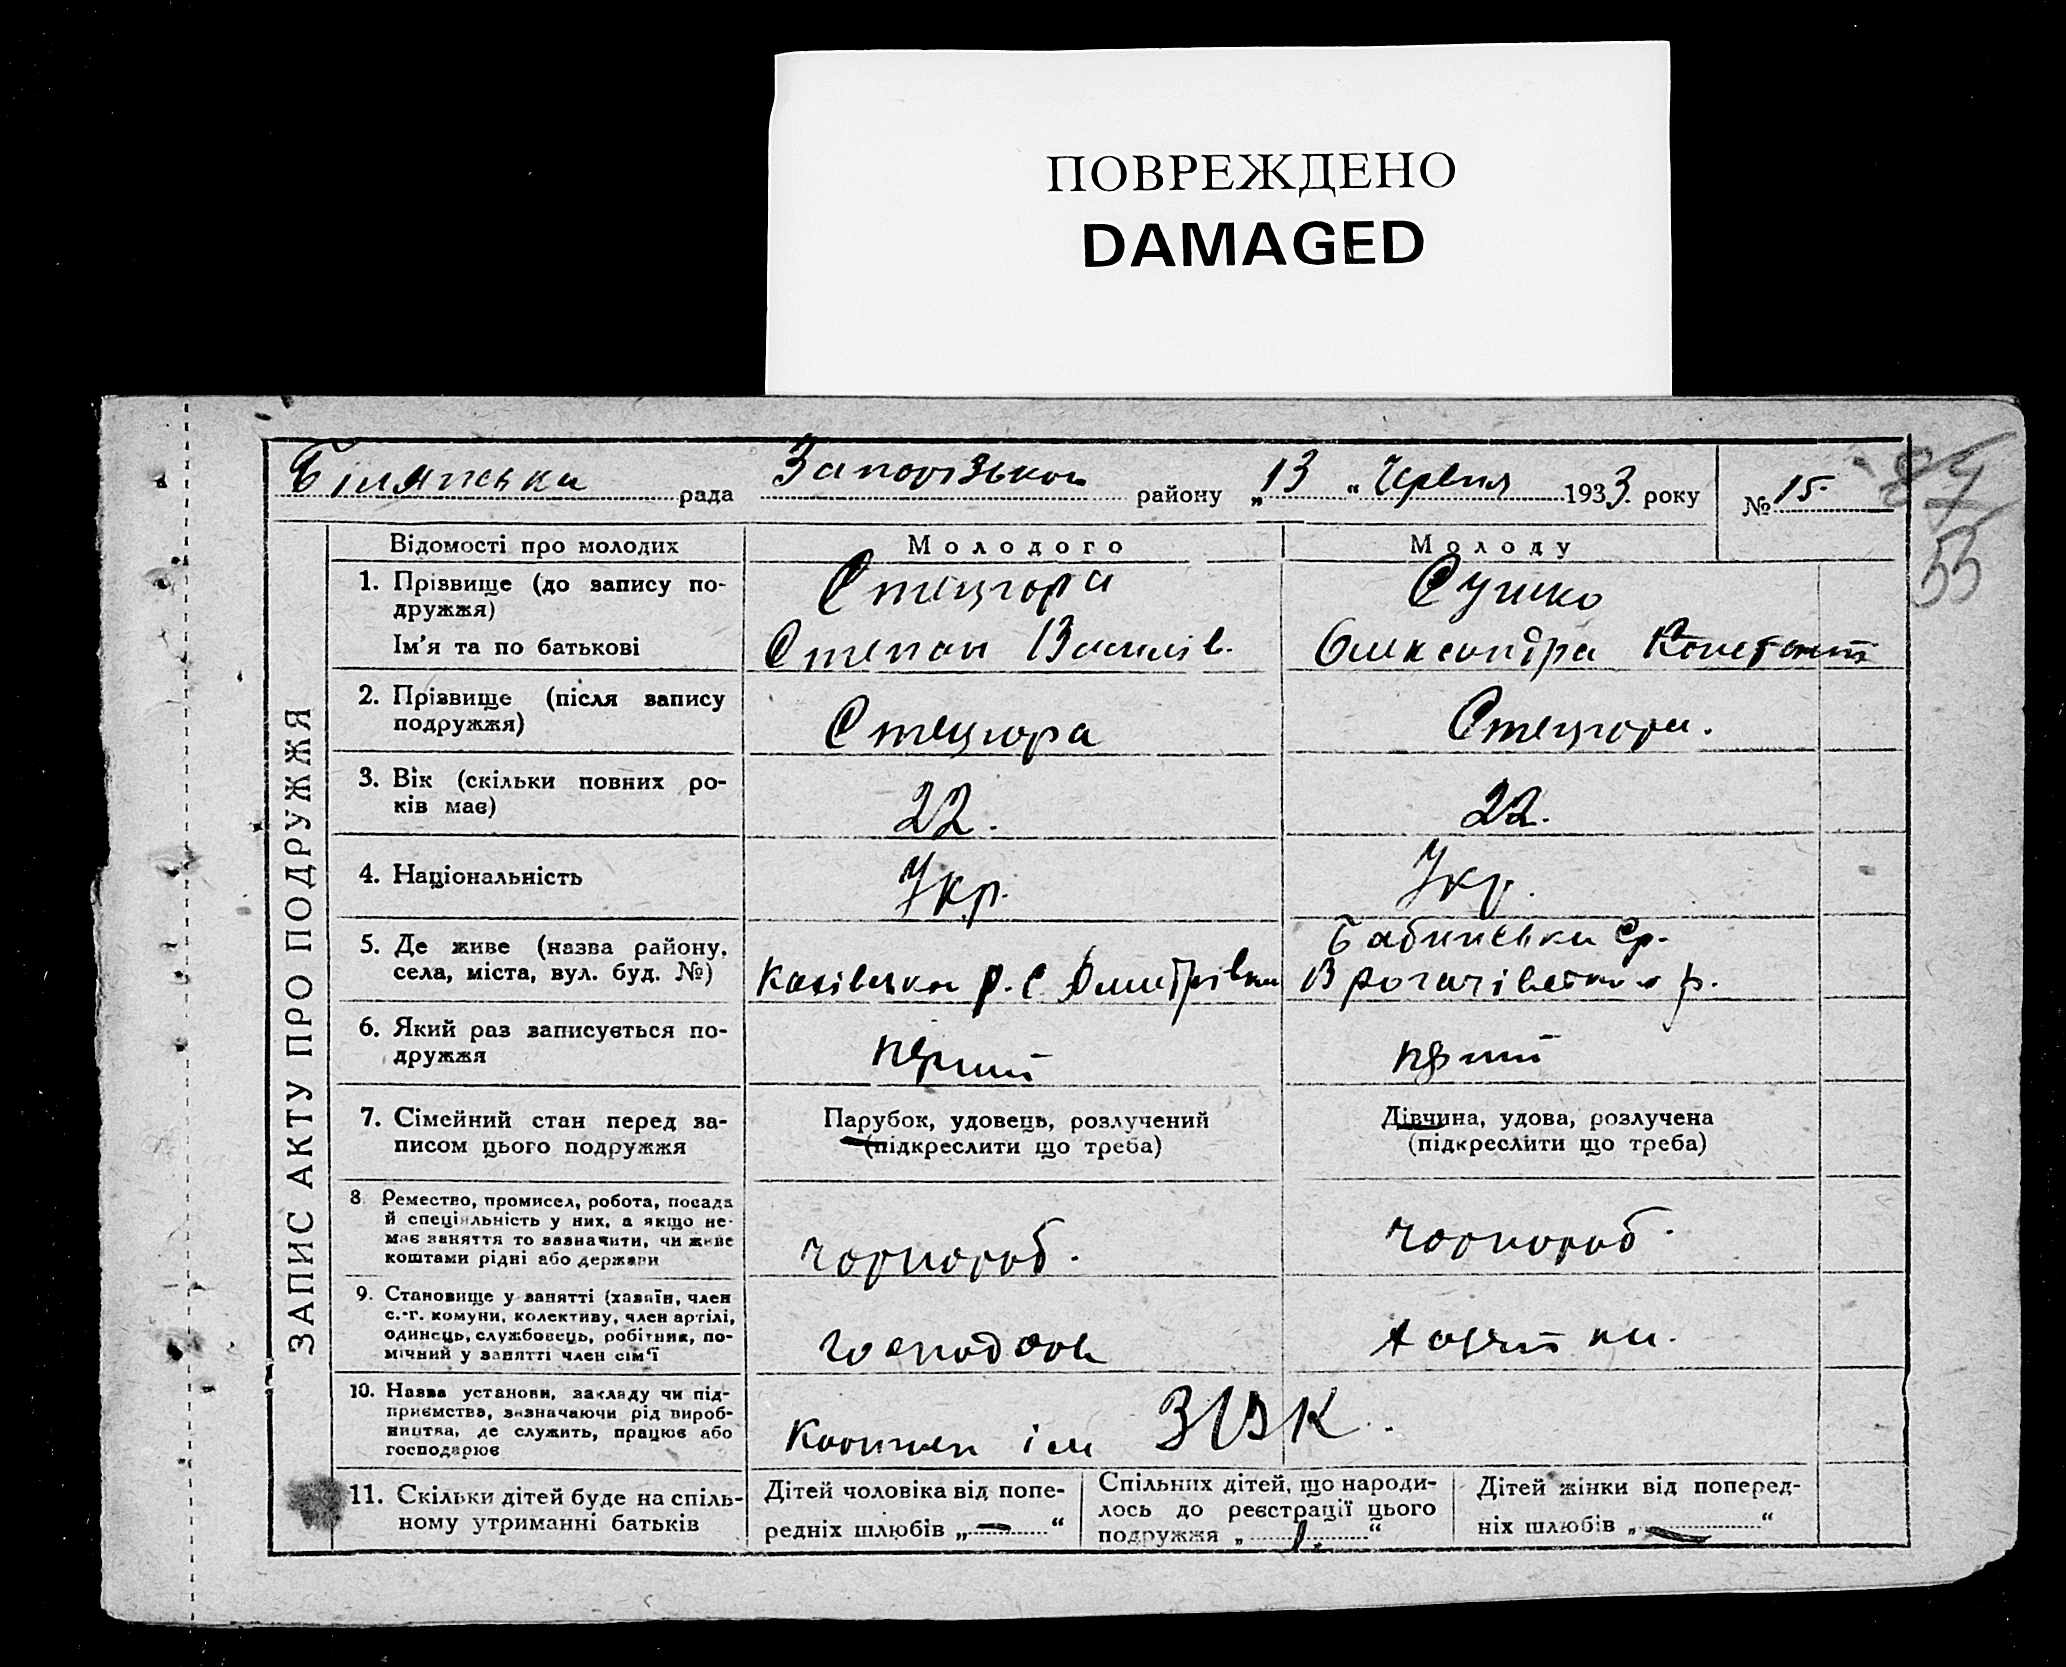 ПОВРЕЖДЕНО
DAMAGED
Білянська рада Запорізького району „13“ Червня 1933 року № 15.
87
55
ЗАПИС АКТУ ПРО ПОДРУЖЖЯ
Відомості про молодих Молодого Молоду
1. Прізвище (до запису по-
дружжя)
Стецюра Сушко
Ім'я та по батькові Степан Василів. Олександра Констант
2. Прізвище (після запису
подружжя)
Стецюра Стецюра.
3. Вік (скільки повних ро-
ків має)
22. 22.
4. Національність Укр. Укр.
5. Де живе (назва району,
села, міста, вул. буд. №)
Р. С Дмитрівка
р.
6. Який раз записується по-
дружжя
перший перший
7. Сімейний стан перед за-
писом цього подружжя
Парубок, удовець, розлучений
(підкреслити що треба)
Дівчина, удова, розлучена
(підкреслити що треба)
8. Ремество, промисел, робота, посада
й спеціяльність у них, а якщо не-
має заняття то зазначити, чи живе
коштами рідні або держави
чорнороб. чорнороб.
9. Становище у занятті (хазяїн, член
с.-г. комуни, колективу, член артілі,
одинець, службовець, робітник, по-
мічний у занятті член сім'ї
10. Назва установи, закладу чи під-
приємства, зазначаючи рід вироб-
ництва, де служить, працює або
господарює
ім
11. Скільки дітей буде на спіль-
ному утриманні батьків
Дітей чоловіка від попе-
редніх шлюбів „—“
Спільних дітей, що народи-
лось до реєстрації цього
подружжя „1.“
Дітей жінки від поперед-
ніх шлюбів „—“